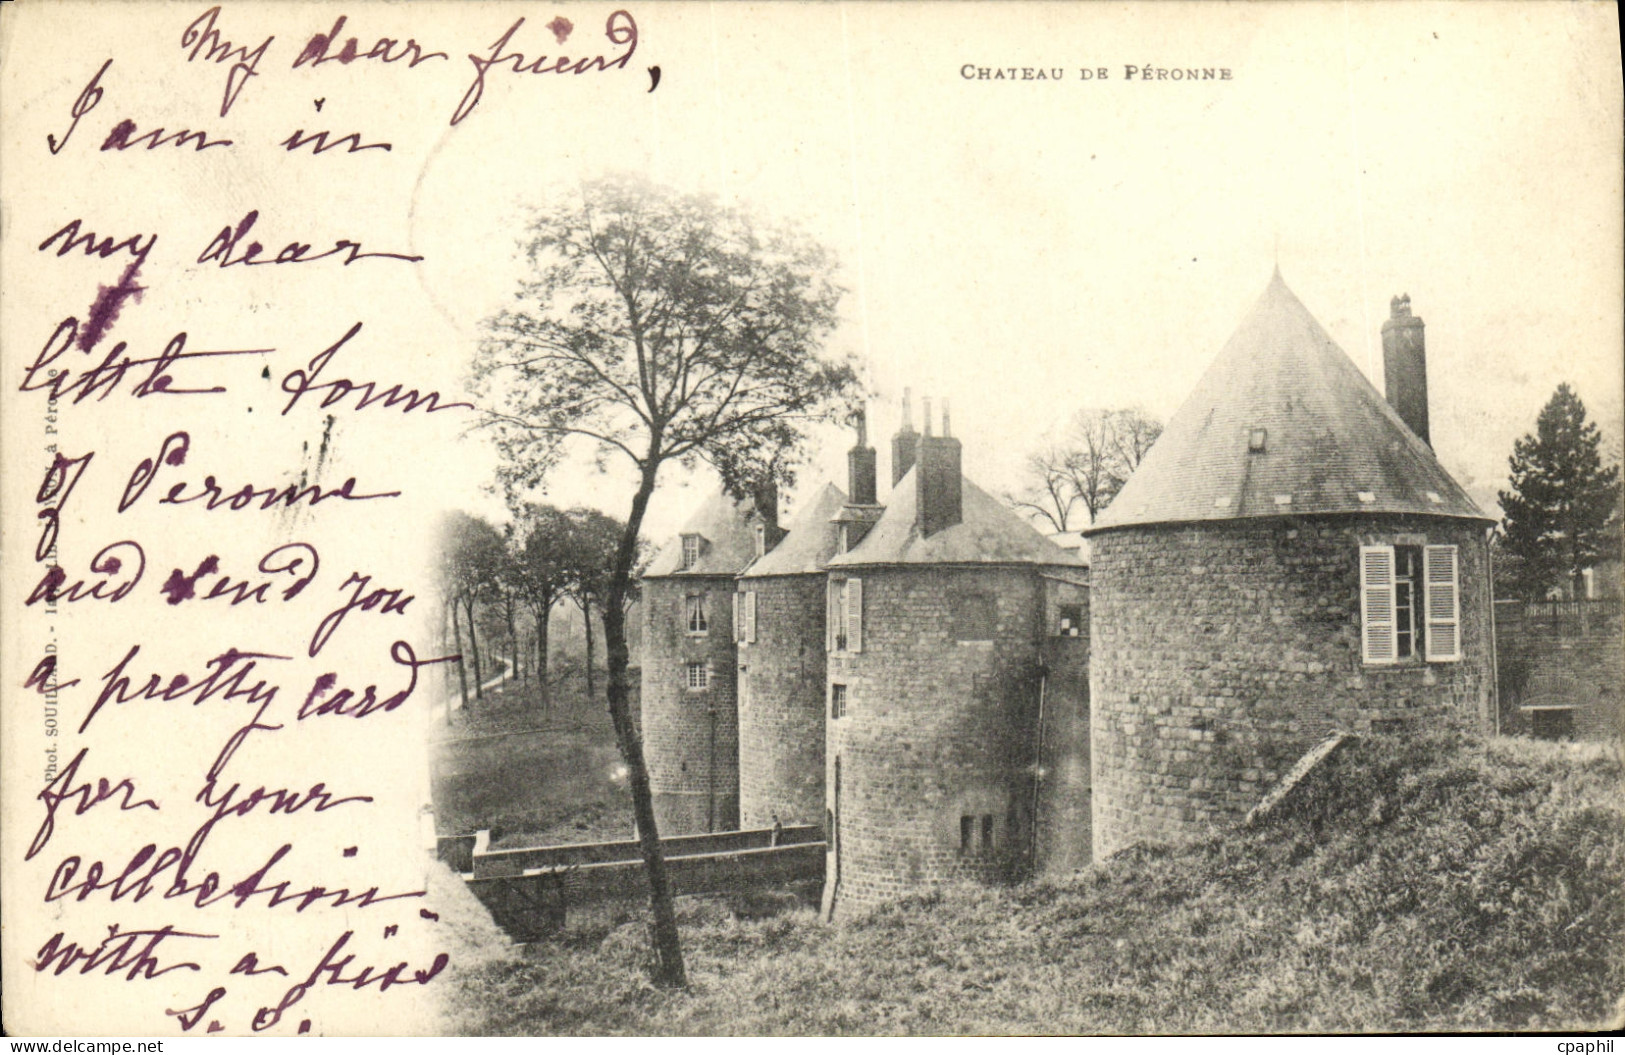 My dear friend,
I am in
my dear
little town
of Peronne
and send you
a pretty card
for your
collection
with a kiss
S. S.
CHATEAU DE PÉRONNE
Phot. SOUILLARD. - à Péronne
cpaphil